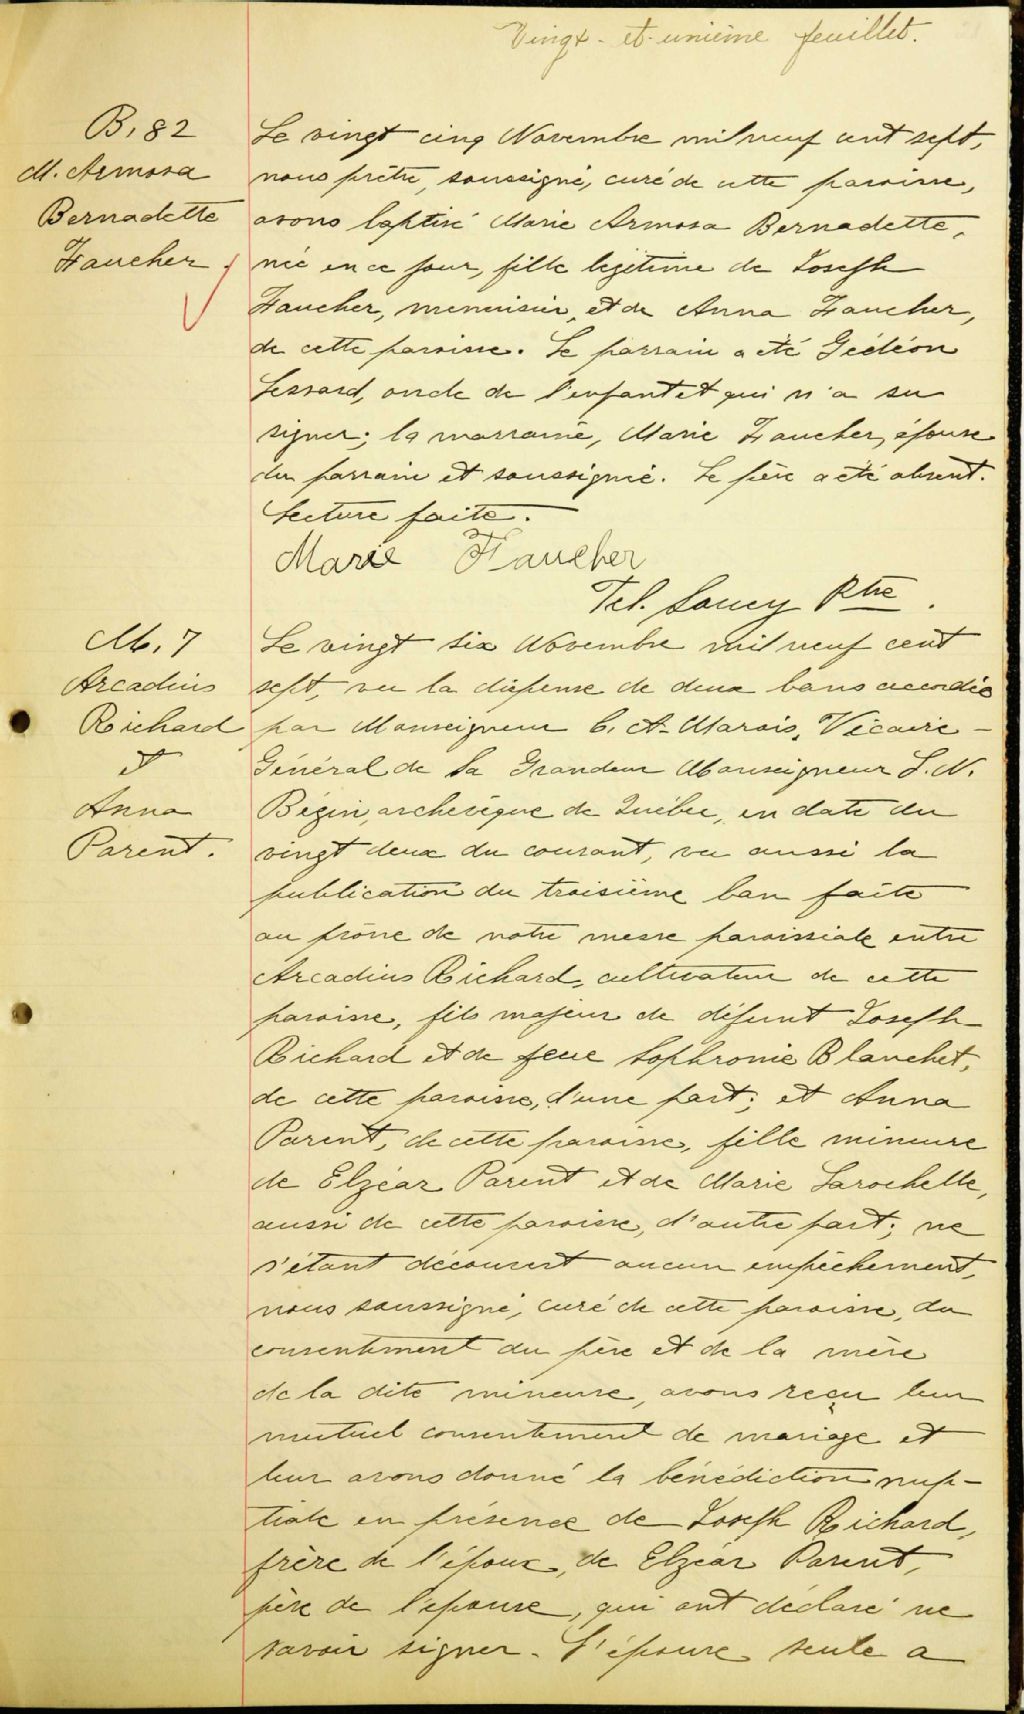 Vingt-et-unième feuillet.
B. 82
M. Armosa
Bernadette
Faucher.
Le vingt cinq Novembre mil neuf cent sept,
nous prêtre, soussigné, curé de cette paroisse,
avons baptisé Marie Armosa Bernadette,
née en ce jour, fille légitime de Joseph
Faucher, menuisier, et de Anna Faucher,
de cette paroisse. Le parrain a été Gédéon
Lessard, oncle de l'enfant et qui n'a su
signer; la marraine, Marie Faucher, épouse
du parrain et soussignée. Le père a été absent.
Lecture faite.
Marie Faucher
Tél. Soucy Ptre.
M. 7
Arcadius
Richard
et
Anna
Parent.
Le vingt six Novembre mil neuf cent
sept, vu la dispense de deux bans accordée
par Monseigneur C. A. Marois, Vicaire-
Général de Sa Grandeur Monseigneur L. N.
Bégin, archevêque de Québec, en date du
vingt deux du courant, vu aussi la
publication du troisième ban faite
au prône de notre messe paroissiale entre
Arcadius Richard, cultivateur de cette
paroisse, fils majeur de défunt Joseph
Richard et de feue Sophronie Blanchet,
de cette paroisse, d'une part; et Anna
Parent, de cette paroisse, fille mineure
de Elzéar Parent et de Marie Larochelle,
aussi de cette paroisse, d'autre part; ne
s'étant découvert aucun empêchement,
nous soussigné, curé de cette paroisse, du
consentement du père et de la mère
de la dite mineure, avons reçu leur
mutuel consentement de mariage et
leur avons donné la bénédiction nup-
tiale en présence de Joseph Richard,
frère de l'époux, de Elzéar Parent,
père de l'épouse, qui ont déclaré ne
savoir signer. L'épouse seule a